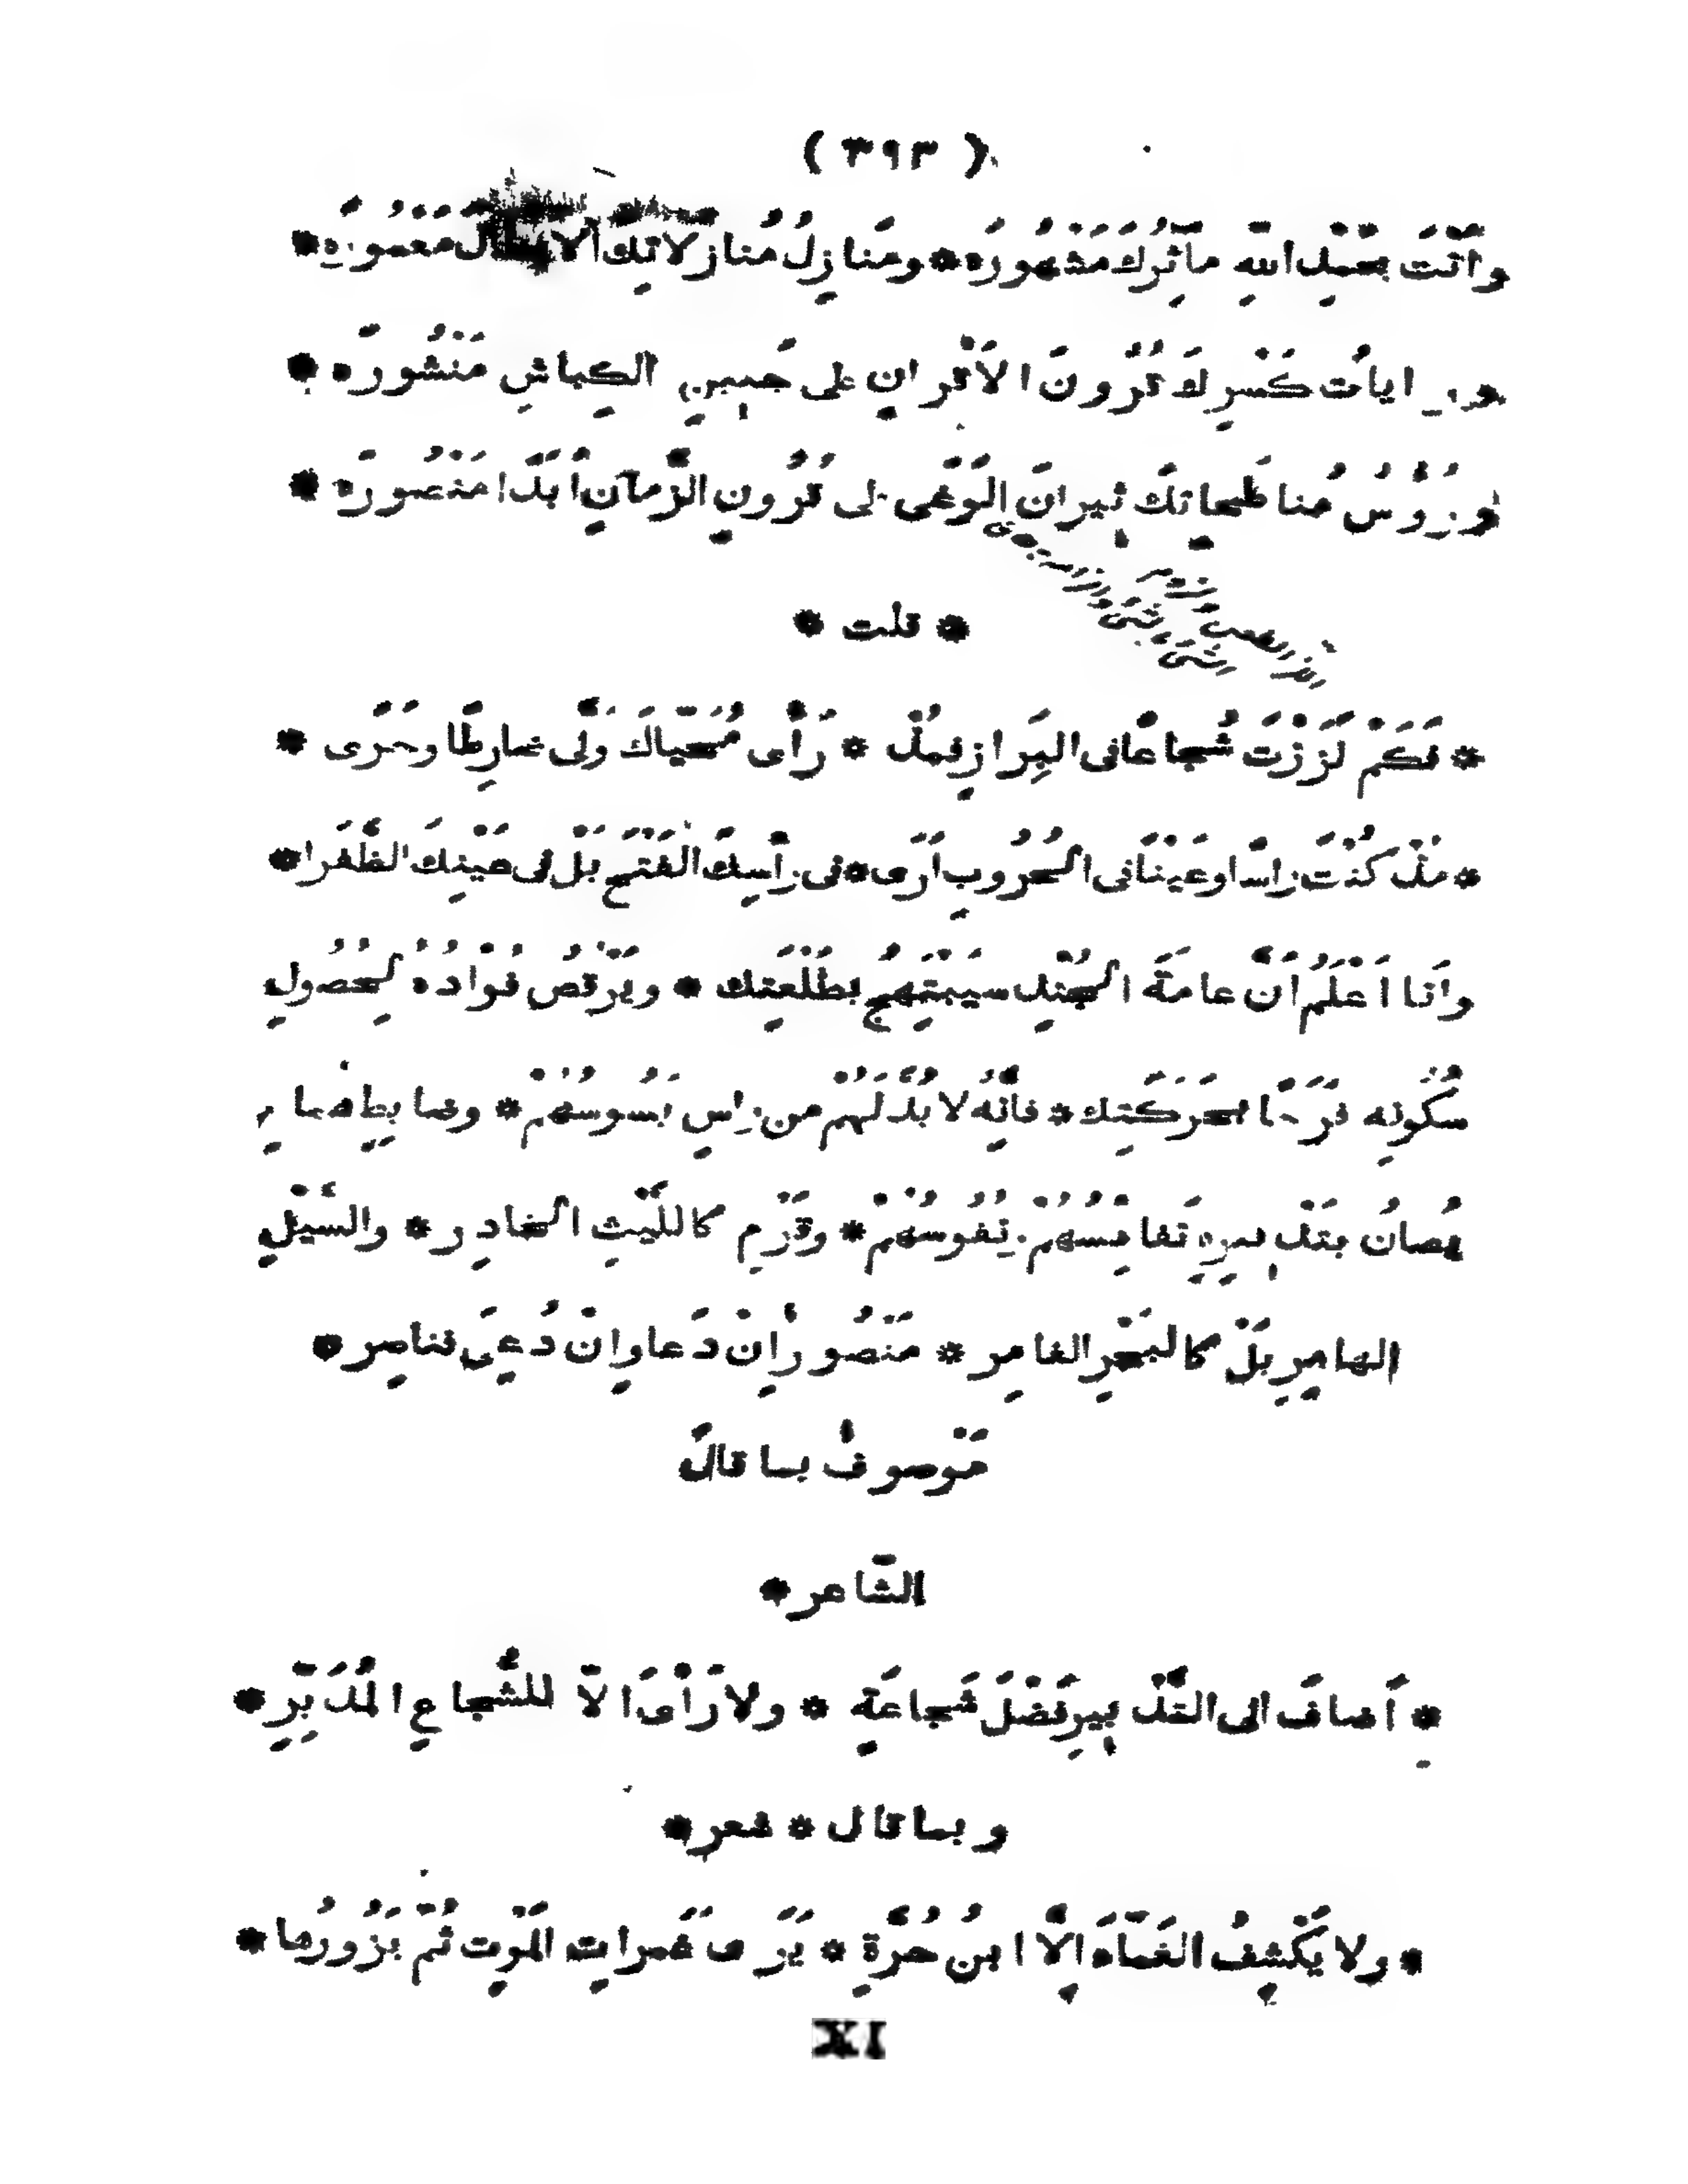 ( ٣٩٣ )
وَاَنْتَ بِحَمْدِ اللهِ مآثِرُكَ مَشْهُورَه * ومَنازِلُ مُنازَلاتِكَ الاَبْطالَ مَعْمُورَه *
ورايات كَسْرِكَ قُرُونَ الاَقْرانِ على جَبِينِ الكِباشِ مَنْشُورَه *
ورُؤُسُ مُناطَحاتِكَ نيرانَ الوَغَى على قُرُونِ الزَّمانِ اَبَدًا مَنْصُورَه *
* قلت *
* فَكَمْ لَزَزْتَ شُجاعًا فى البِرَازِ فَمُذْ * رَأَى مُحَيّاكَ وَلَّى ضارِطًا وخَرَى *
* مُذْ كُنْتَ رَاسًا وعَيْنًا فى الحُرُوبِ اَرَى * فى رَأسِكَ الفَتْحَ بَلْ فى عَيْنِكَ الظَّفَرا *
واَنا اَعْلَمُ اَنَّ عامَّةَ الجُنْدِ سَيَبْتَهِجُ بِطَلْعَتِك * ويَرْقُصُ فُؤادُهُ لِحُصُولِ
سُكُونِه فَرَحًا بحَرَكَتِك * فانَّهُ لا بُدَّ لَهُمْ من رَاسٍ يَسُوسُهُمْ * وضابِطٍ
يُصانُ بتَدْبيرِهِ نَفائِسُهُمْ ونُفُوسُهُمْ * وقَرْمٍ كاللَّيْثِ الخادِر * والسَّيْلِ
الهامِرِ بَلْ كالبَحْرِ الغامِر * مَنْصُورٍ اِنْ دَعا واِنْ دُعِىَ فناصِر *
مَوْصوفٌ بما قالَ
الشّاعر *
* اَضافَ الى التَّدْبيرِ فَضْلَ شَجاعَةٍ * ولا رَأْىَ الاّ للشُّجاعِ المُدَبِّرِ *
وبما قال * شعر *
* ولا يَكْشِفُ الغَمّاءَ اِلَّا ابنُ حُرَّةٍ * يَرَى غَمَراتِ المَوْت ثُمَّ يَزُورُها *
XI